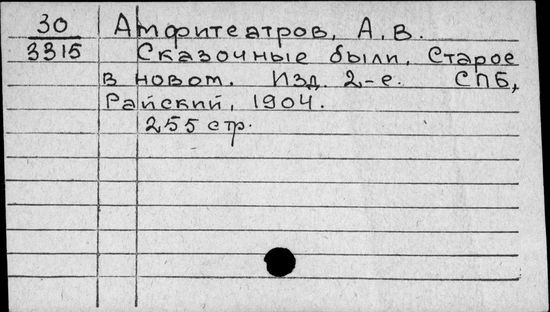 30 Амфитеатров, А.В.
3315 Сказочные были. Старое
в новом. Изд. 2-е. СПБ,
Райский, 1904.
255 стр.